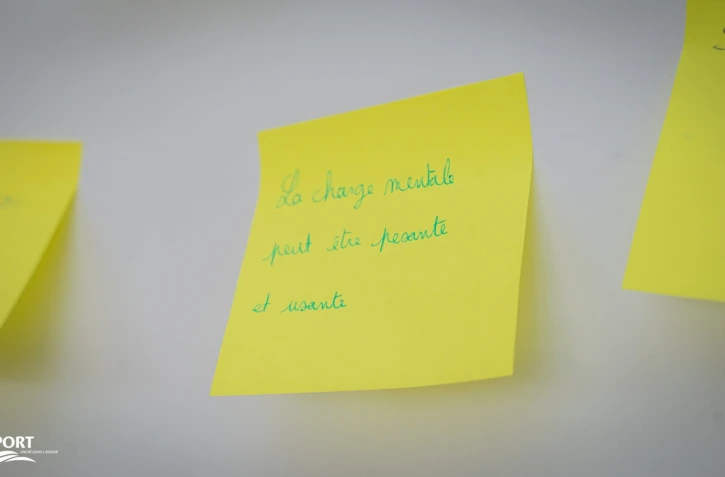 La charge mentale
peut être pesante
et usante
PORT